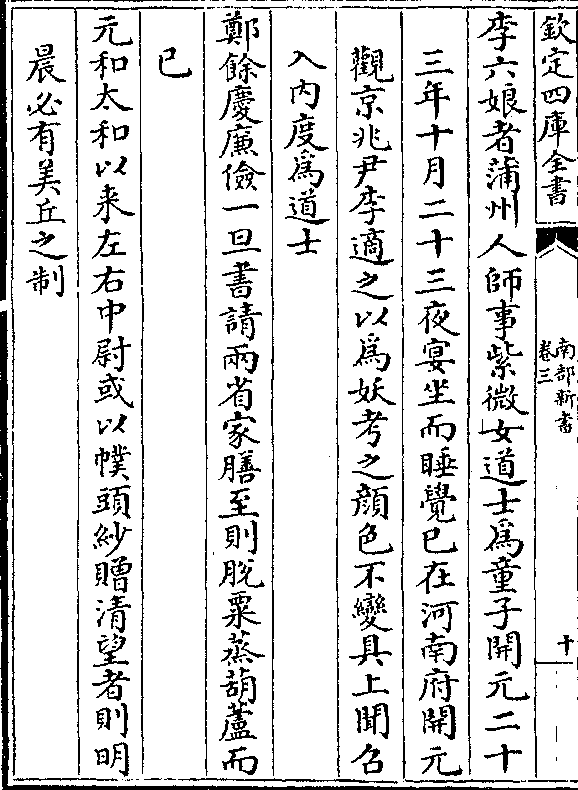 欽定四庫全書
南部新書
卷三
十
李六娘者蒲州人師事紫微女道士爲童子開元二十
三年十月二十三夜宴坐而睡覺已在河南府開元
觀京兆尹李適之以爲妖考之顔色不變具上聞召
入内度爲道士
鄭餘慶廉儉一旦書請兩省家膳至則脱粟蒸葫蘆而
已
元和太和以来左右中尉或以幞頭紗贈清望者則明
晨必有美丘之制